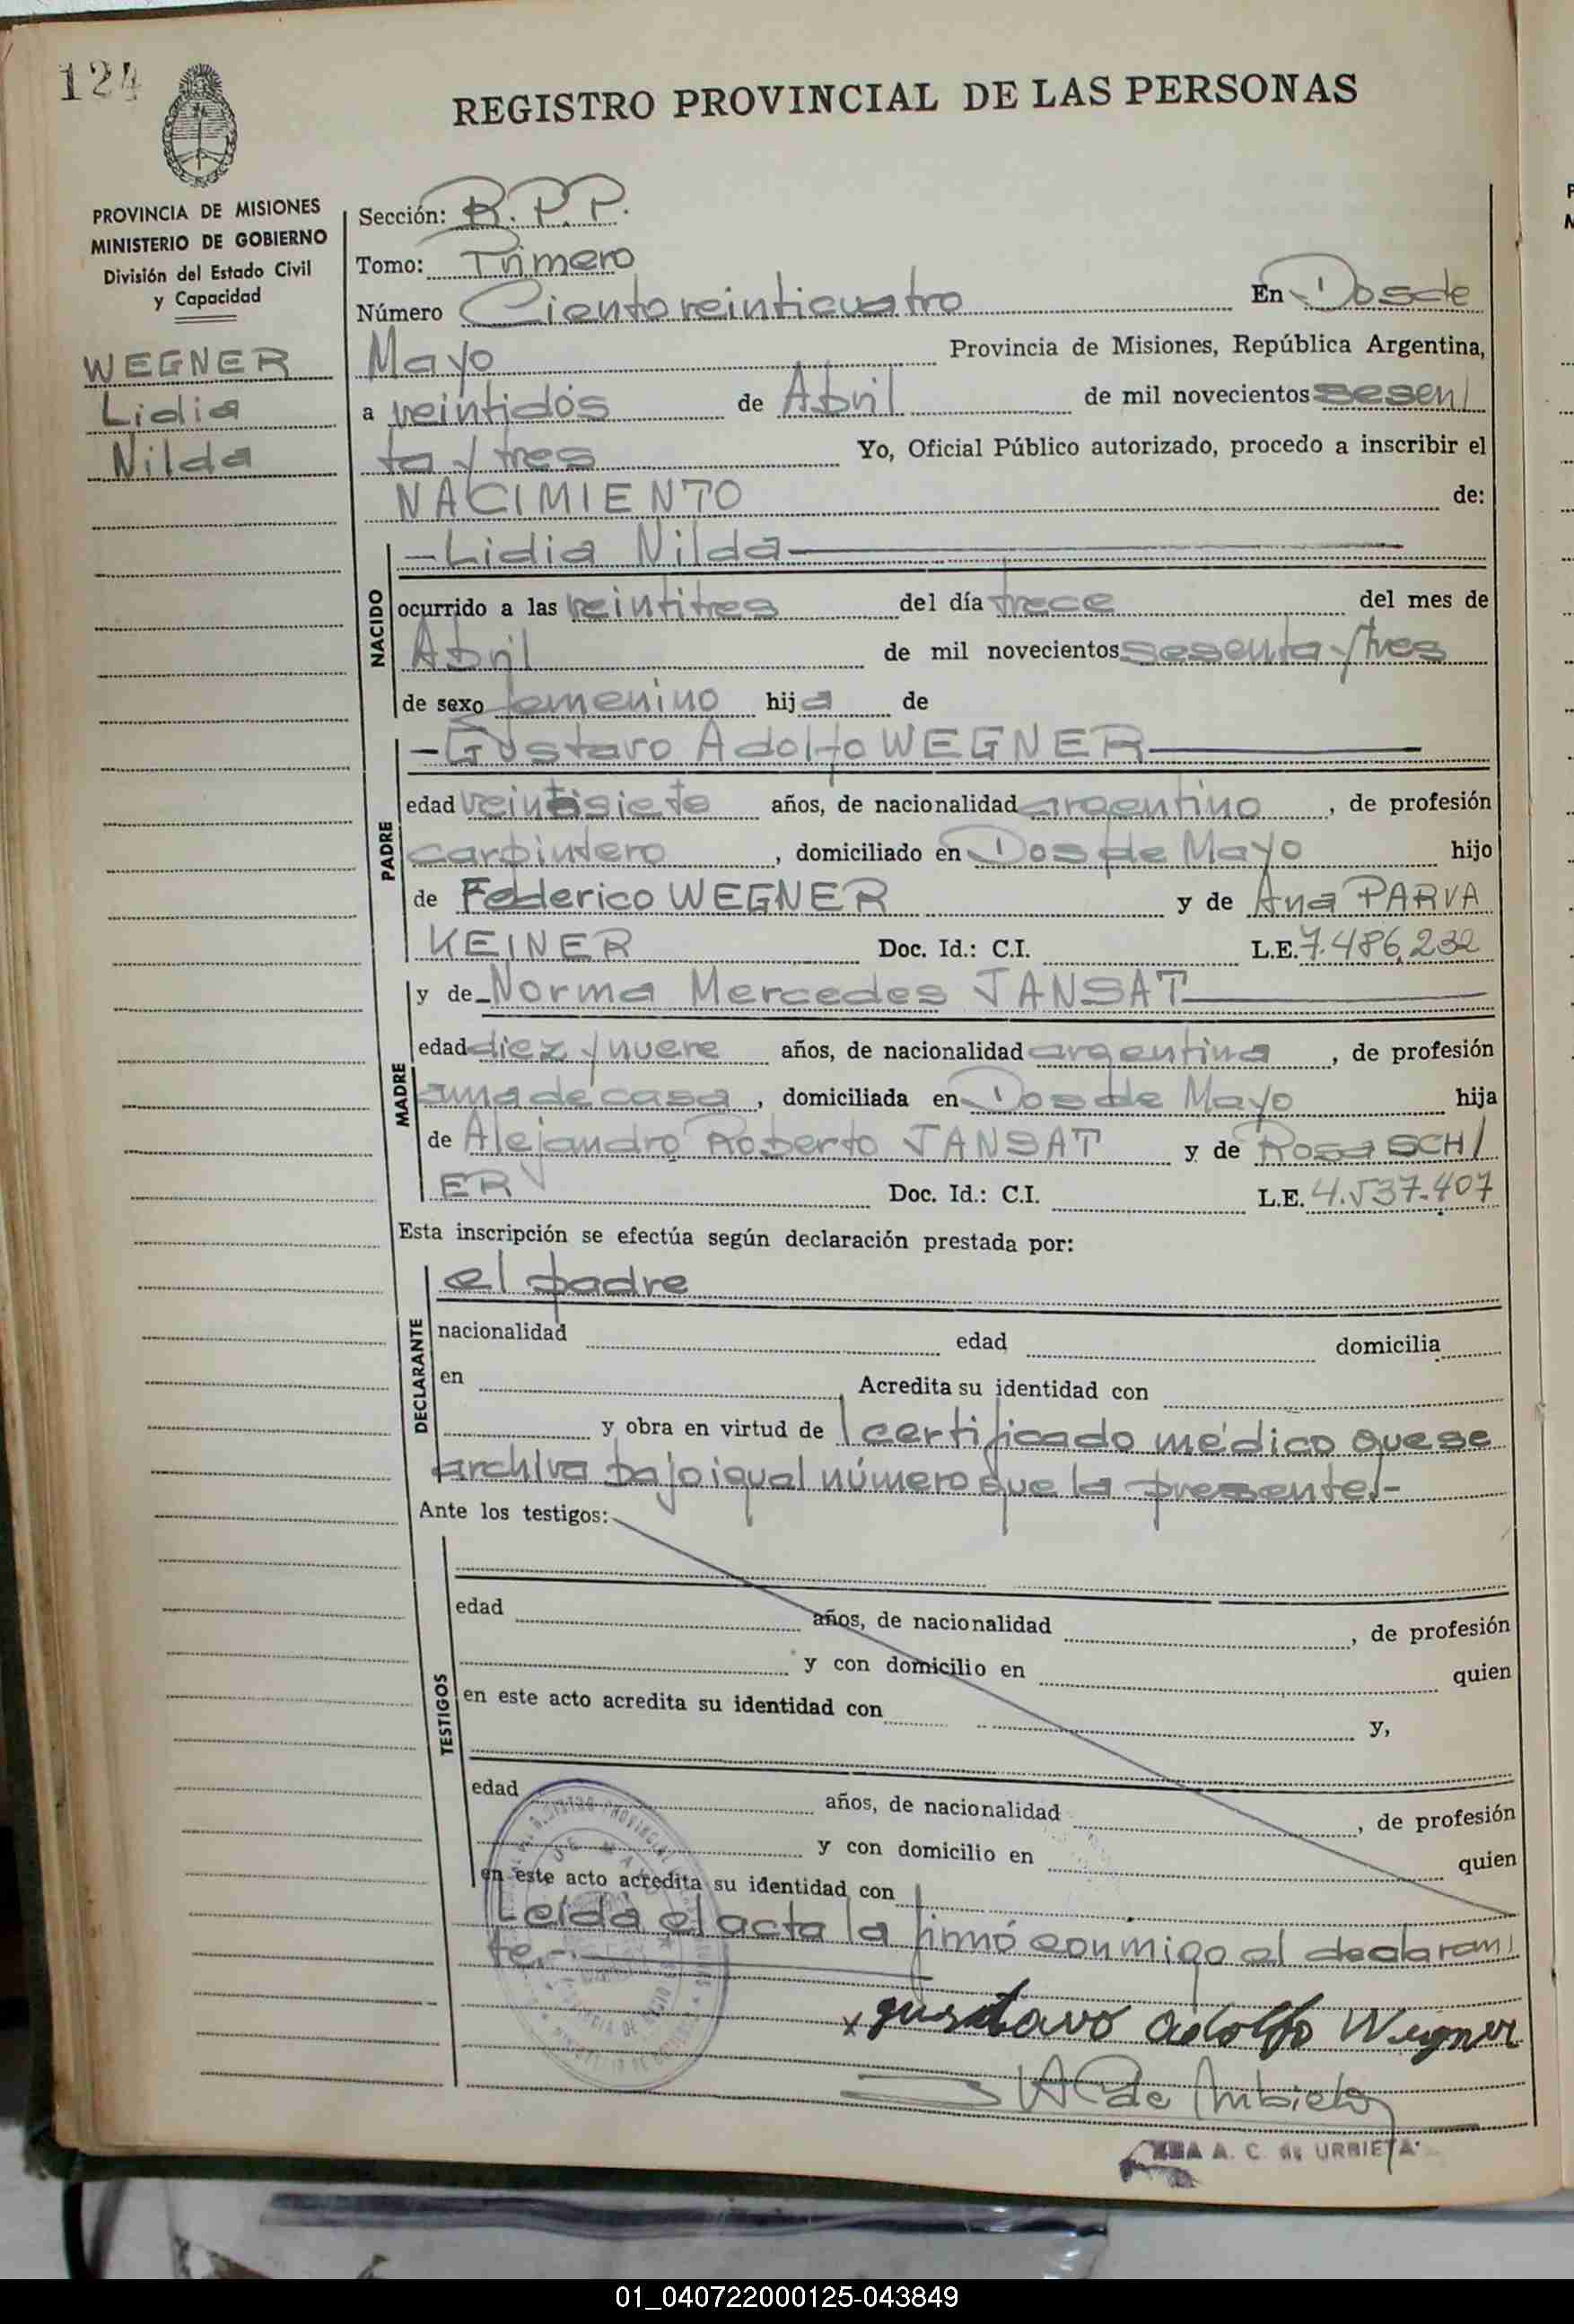 124
REGISTRO PROVINCIAL DE LAS PERSONAS
PROVINCIA DE MISIONES
MINISTERIO DE GOBIERNO
División del Estado Civil
y Capacidad
WEGNER
Lidia
Nilda
Sección: B. P. P.
Tomo: Primero
Número Ciento veinticuatro En Dos de
Mayo Provincia de Misiones, República Argentina,
a veintidós de Abril de mil novecientos sesen/
ta y tres Yo, Oficial Público autorizado, procedo a inscribir el
NACIMIENTO de:
NACIDO
-Lidia Nilda-
ocurrido a las veintitres del día trece del mes de
Abril de mil novecientos sesenta y tres
de sexo femenino hija de
PADRE
-Gustavo Adolfo WEGNER-
edad veintisiete años, de nacionalidad argentino, de profesión
carpintero, domiciliado en Dos de Mayo hijo
de Federico WEGNER y de Ana PARVA
KEINER Doc. Id.: C.I. L.E. 7.486.232
MADRE
y de -Norma Mercedes JANSAT-
edad diez y nueve años, de nacionalidad argentina, de profesión
ama de casa, domiciliada en Dos de Mayo hija
de Alejandro Roberto JANSAT y de Rosa SCH/
ER Doc. Id.: C.I. L.E. 4.537.407
Esta inscripción se efectúa según declaración prestada por:
DECLARANTE
el padre
nacionalidad edad domicilia
en Acredita su identidad con
y obra en virtud de / certificado médico que se
archiva bajo igual número que la presente.-
Ante los testigos:
TESTIGOS
edad años, de nacionalidad , de profesión
y con domicilio en quien
en este acto acredita su identidad con y,
edad años, de nacionalidad , de profesión
y con domicilio en quien
en este acto acredita su identidad con
Leída el acta la firmó conmigo el declaran/
te.-
x gustavo adolfo Wegner
A. C. de URBIETA
01_040722000125-043849